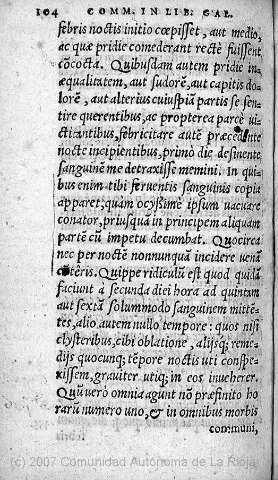 104 COMM. IN LIB. GAL.
febris noctis initio cœpisset, aut medio,
ac quæ pridie comederant rectè fuissent
cōcocta. Quibusdam autem pridie in-
æqualitatem, aut sudorē, aut capitis do-
lorē, aut alterius cuiuspiā partis se sen-
tire querentibus, ac propterea parcè vi-
ctitantibus, febricitare autē præcedente
nocte incipientibus, primò die desinente
sanguinē me detraxisse memini. In qui-
bus enim tibi feruentis sanguinis copia
apparet; quàm ocyssimè ipsum vacuare
conator, priusquā in principem aliquam
partē cū impetu decumbat. Quocirca
nec per noctē nonnunquā incidere venā
cæteris. Quippe ridiculū est quod quidā
faciunt à secunda diei hora ad quintam
aut sextā solummodo sanguinem mittē-
tes, alio autem nullo tempore: quos nisi
clysteribus, cibi oblatione, alijsq; reme-
dijs quocunq; tēpore noctis uti conspe-
xissem, grauiter utiq; in eos inueherer.
Quū verò omnia agunt nō præfinito ho-
rarū numero uno, & in omnibus morbis
communi,
(c) 2007 Comunidad Autónoma de La Rioja